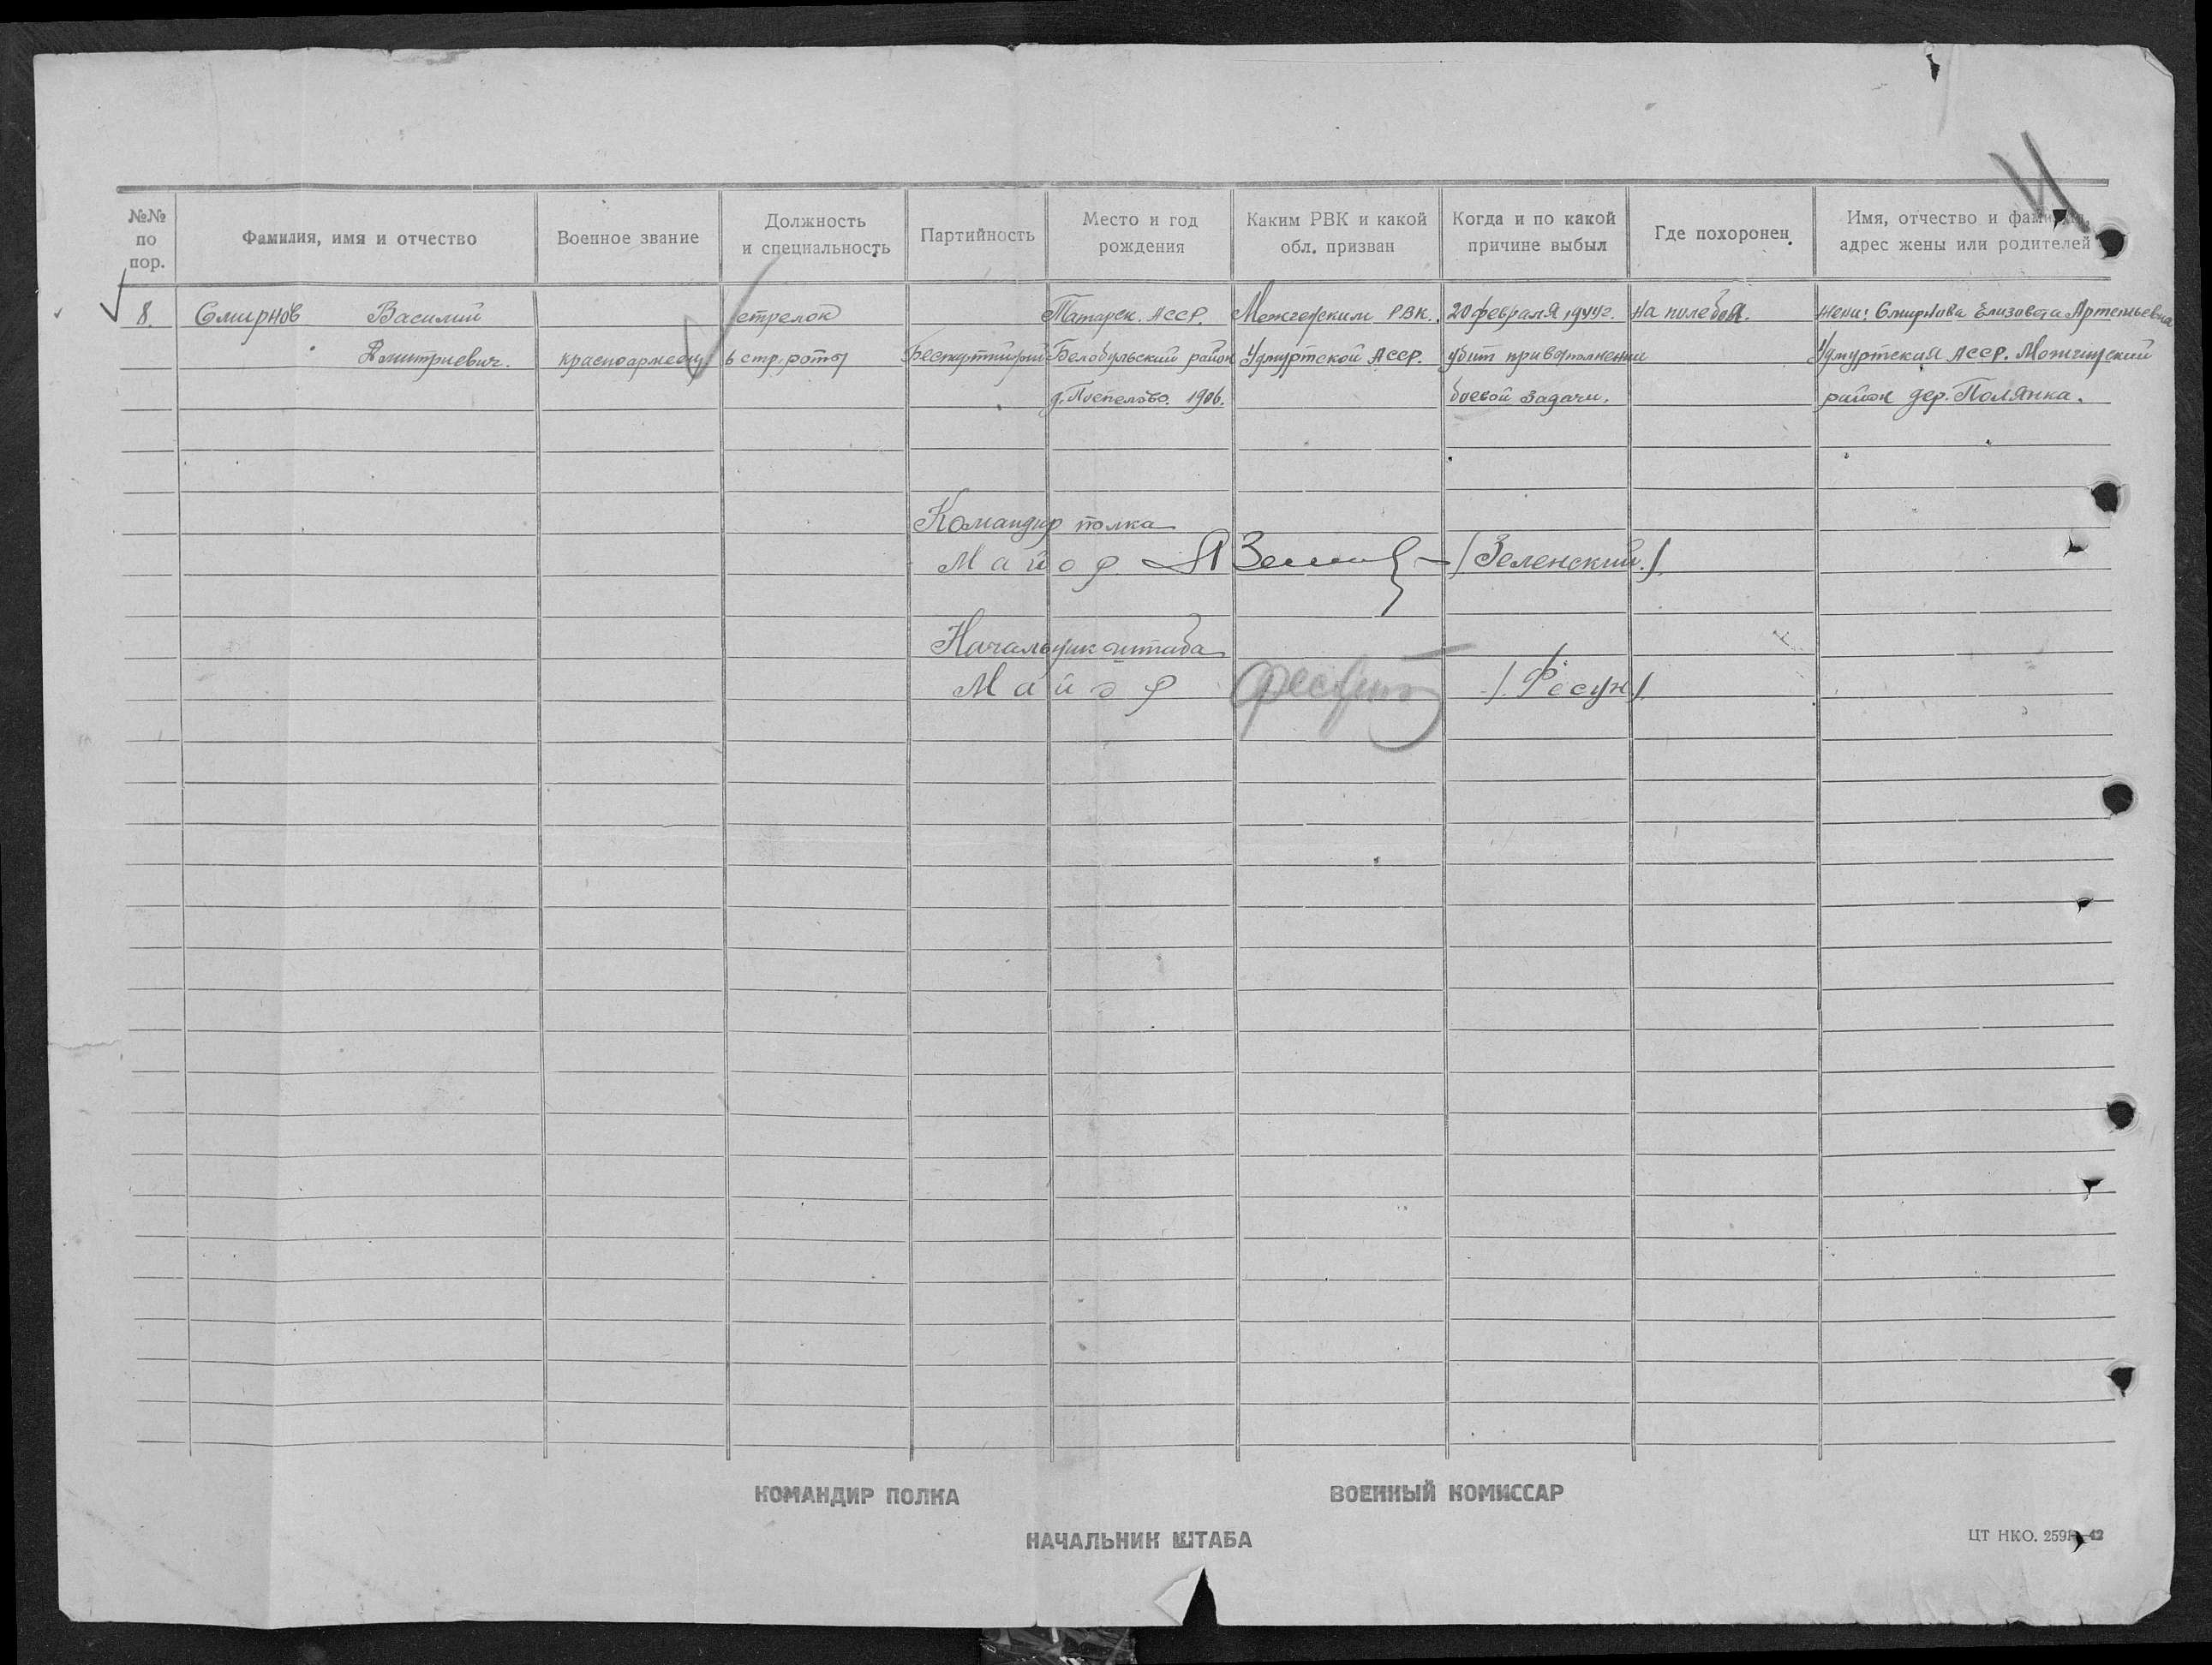 №№ по пор.
Фамилия, имя и отчество
Военное звание
Должность и специальность
Партийность
Место и год рождения
Каким РВК и какой обл. призван
Когда и по какой причине выбыл
Где похоронен
Имя, отчество и фамилия, адрес жены или родителей
8. Смирнов Василий стрелок Татарск. АССР. Можгефским РВК. 20 февраля 1944г. На поле боя. жена: Смирнова Елизовета Артемьевна
Дмитриевич. красноармеец 6 стр. роты Беспартийный район Удмуртской АССР. убит при выполнении Удмуртская АССР. Можгинский
1906. боевой задачи. район дер. Полянка.
Командир полка
Майор /Зеленский./
Начальник штаба
Майор /Фесун/.
КОМАНДИР ПОЛКА
ВОЕННЫЙ КОМИССАР
НАЧАЛЬНИК ШТАБА
ЦТ НКО.